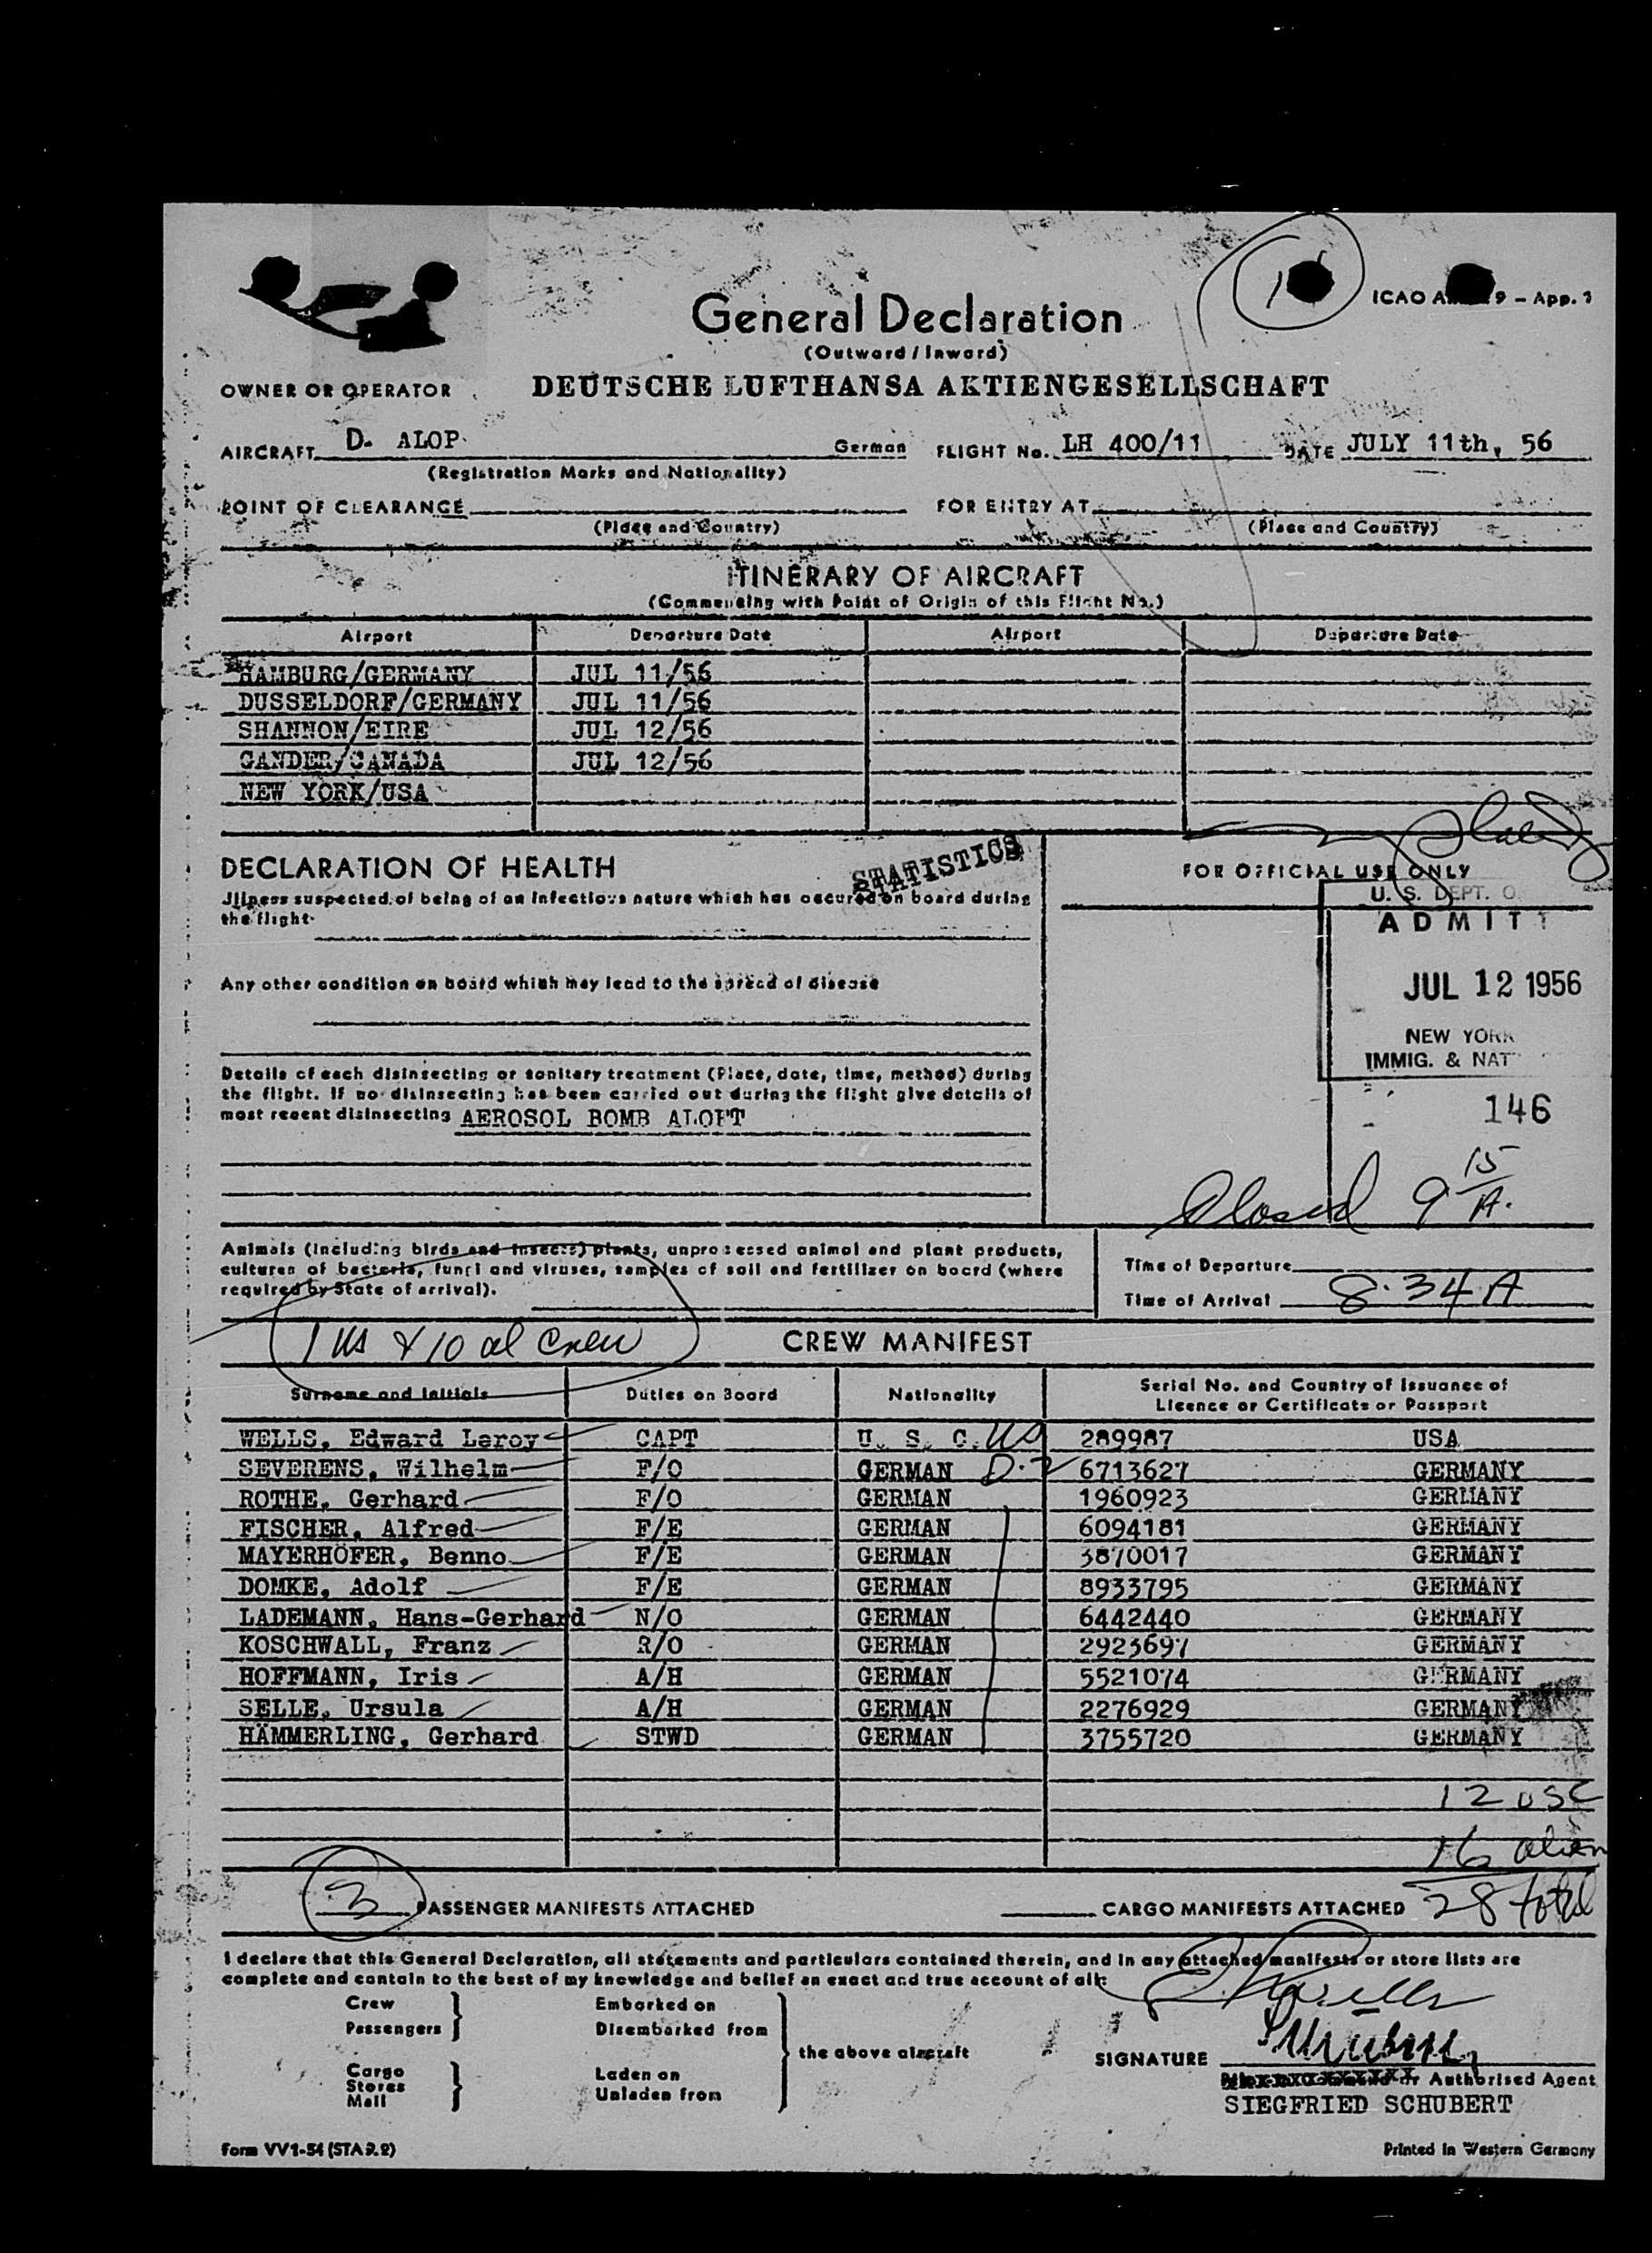 ICAO A 9 – App. 1
General Declaration
(Outward / Inward)
OWNER OR OPERATOR DEUTSCHE LUFTHANSA AKTIENGESELLSCHAFT
AIRCRAFT D- ALOP German FLIGHT No. LH 400/11 DATE JULY 11th, 56
(Registration Marks and Nationality)
POINT OF CLEARANCE FOR ENTRY AT
(Place and Country) (Place and Country)
ITINERARY OF AIRCRAFT
(Commencing with Point of Origin of this Flight No.)
Airport Departure Date Airport Departure Date
HAMBURG/GERMANY JUL 11/56
DUSSELDORF/GERMANY JUL 11/56
SHANNON/EIRE JUL 12/56
GANDER/CANADA JUL 12/56
NEW YORK/USA
STATISTICS
DECLARATION OF HEALTH
Illness suspected of being of an infectious nature which has occured on board during
the flight
Any other condition on board which may lead to the spread of disease
Details of each disinsecting or sanitary treatment (Place, date, time, method) during
the flight. If no disinsecting has been carried out during the flight give details of
most recent disinsecting AEROSOL BOMB ALOFT
FOR OFFICIAL USE ONLY
U. S. DEPT. O
ADMITT
JUL 12 1956
NEW YORK
IMMIG. & NAT
146
Closed 9 15/A.
Animals (including birds and insects) plants, unprocessed animal and plant products,
cultures of bacteria, fungi and viruses, samples of soil and fertilizer on board (where
required by State of arrival).
Time of Departure
Time of Arrival 8:34 A
1 US & 10 al Crew
CREW MANIFEST
Surname and Initials Duties on Board Nationality Serial No. and Country of Issuance of
Licence or Certificate or Passport
WELLS, Edward Leroy CAPT U. S. C. US 289987 USA
SEVERENS, Wilhelm F/O GERMAN D-2 6713627 GERMANY
ROTHE, Gerhard F/O GERMAN 1960923 GERMANY
FISCHER, Alfred F/E GERMAN 6094181 GERMANY
MAYERHÖFER, Benno F/E GERMAN 3870017 GERMANY
DOMKE, Adolf F/E GERMAN 8933795 GERMANY
LADEMANN, Hans-Gerhard N/O GERMAN 6442440 GERMANY
KOSCHWALL, Franz R/O GERMAN 2923697 GERMANY
HOFFMANN, Iris A/H GERMAN 5521074 GERMANY
SELLE, Ursula A/H GERMAN 2276929 GERMANY
HÄMMERLING, Gerhard STWD GERMAN 3755720 GERMANY
12 USC
16 alien
28 total
3 PASSENGER MANIFESTS ATTACHED CARGO MANIFESTS ATTACHED
I declare that this General Declaration, all statements and particulars contained therein, and in any attached manifests or store lists are
complete and contain to the best of my knowledge and belief an exact and true account of all:
Crew
Passengers
Embarked on
Disembarked from
Cargo
Stores
Mail
Laden on
Unladen from
the above aircraft
SIGNATURE
or Authorised Agent
SIEGFRIED SCHUBERT
Form VV1-54 (STA 2.2) Printed in Western Germany